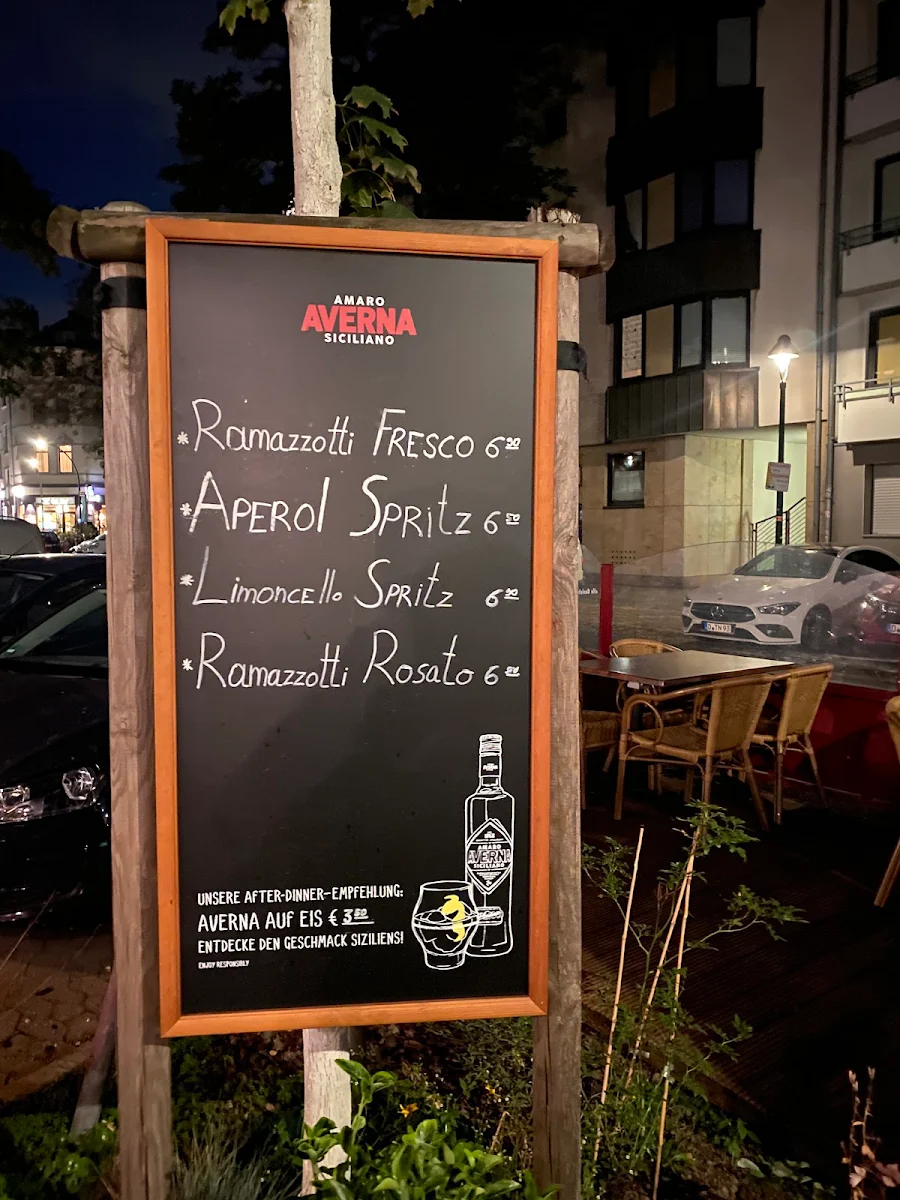 AMARO
AVERNA
SICILIANO
* Ramazzotti FRESCO 6 90
* APEROl SPRitz 6 50
* Limoncello SPRitz 6 90
* Ramazzotti Rosato 6 50
AMARO
AVERNA
SICILIANO
UNSERE AFTER-DINNER-EMPFEHLUNG:
AVERNA AUF EIS € 3 50
ENTDECKE DEN GESCHMACK SIZILIENS!
ENJOY RESPONSIBLY
D TN 93